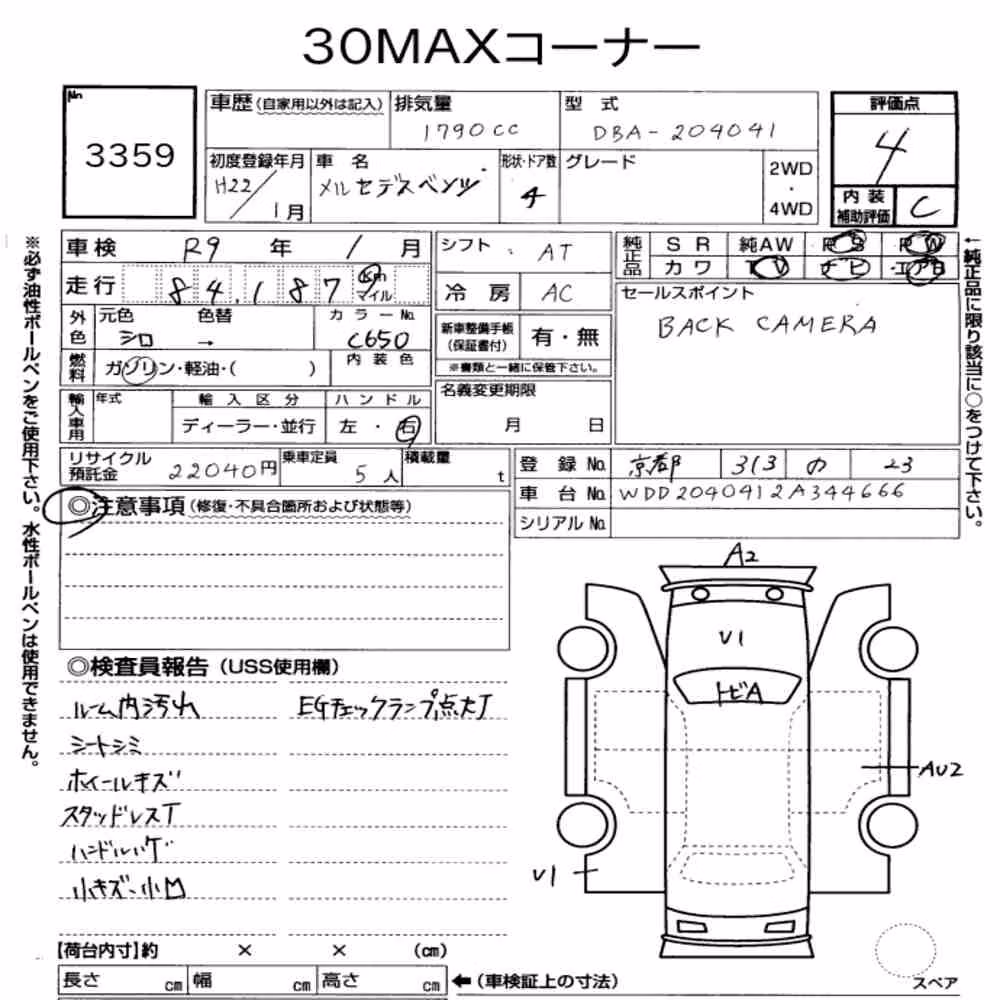 30MAXコーナー
No. 3359
車歴 (自家用以外は記入) 排気量 1790cc 型式 DBA-204041 評価点 4
初度登録年月 H22/1月 車名 メルセデスベンツ 形状・ドア数 4 グレード 2WD・4WD 内装補助評価 C
車検 R9年 1月 シフト AT 純正品 SR 純AW PS PW
走行 84,187 Km マイル 冷房 AC カワ TV ナビ エアB
外色 元色 シロ 色替 → カラーNo. C650 新車整備手帳 (保証書付) 有・無 セールスポイント BACK CAMERA
※書類と一緒に保管下さい。
燃料 ガソリン・軽油・( ) 内装色 名義変更期限 月 日
輸入車用 年式 輸入区分 ディーラー・並行 ハンドル 左・右
リサイクル預託金 22040円 乗車定員 5人 積載量 t 登録No. 京都 313 の 23
車台No. WDD2040412A344666
シリアルNo.
◎注意事項 (修復・不具合箇所および状態等)
◎検査員報告 (USS使用欄)
ルーム内汚れ EGチェックランプ点灯
シートシミ
ホイールキズ
スタッドレスT
ハンドルハゲ
小キズ・小凹
【荷台内寸】約 × × (cm)
長さ cm 幅 cm 高さ cm ←(車検証上の寸法)
A2
V1
トビA
AU2
V1
スペア
※必ず油性ボールペンをご使用下さい。水性ボールペンは使用できません。
←純正品に限り該当に○をつけて下さい。